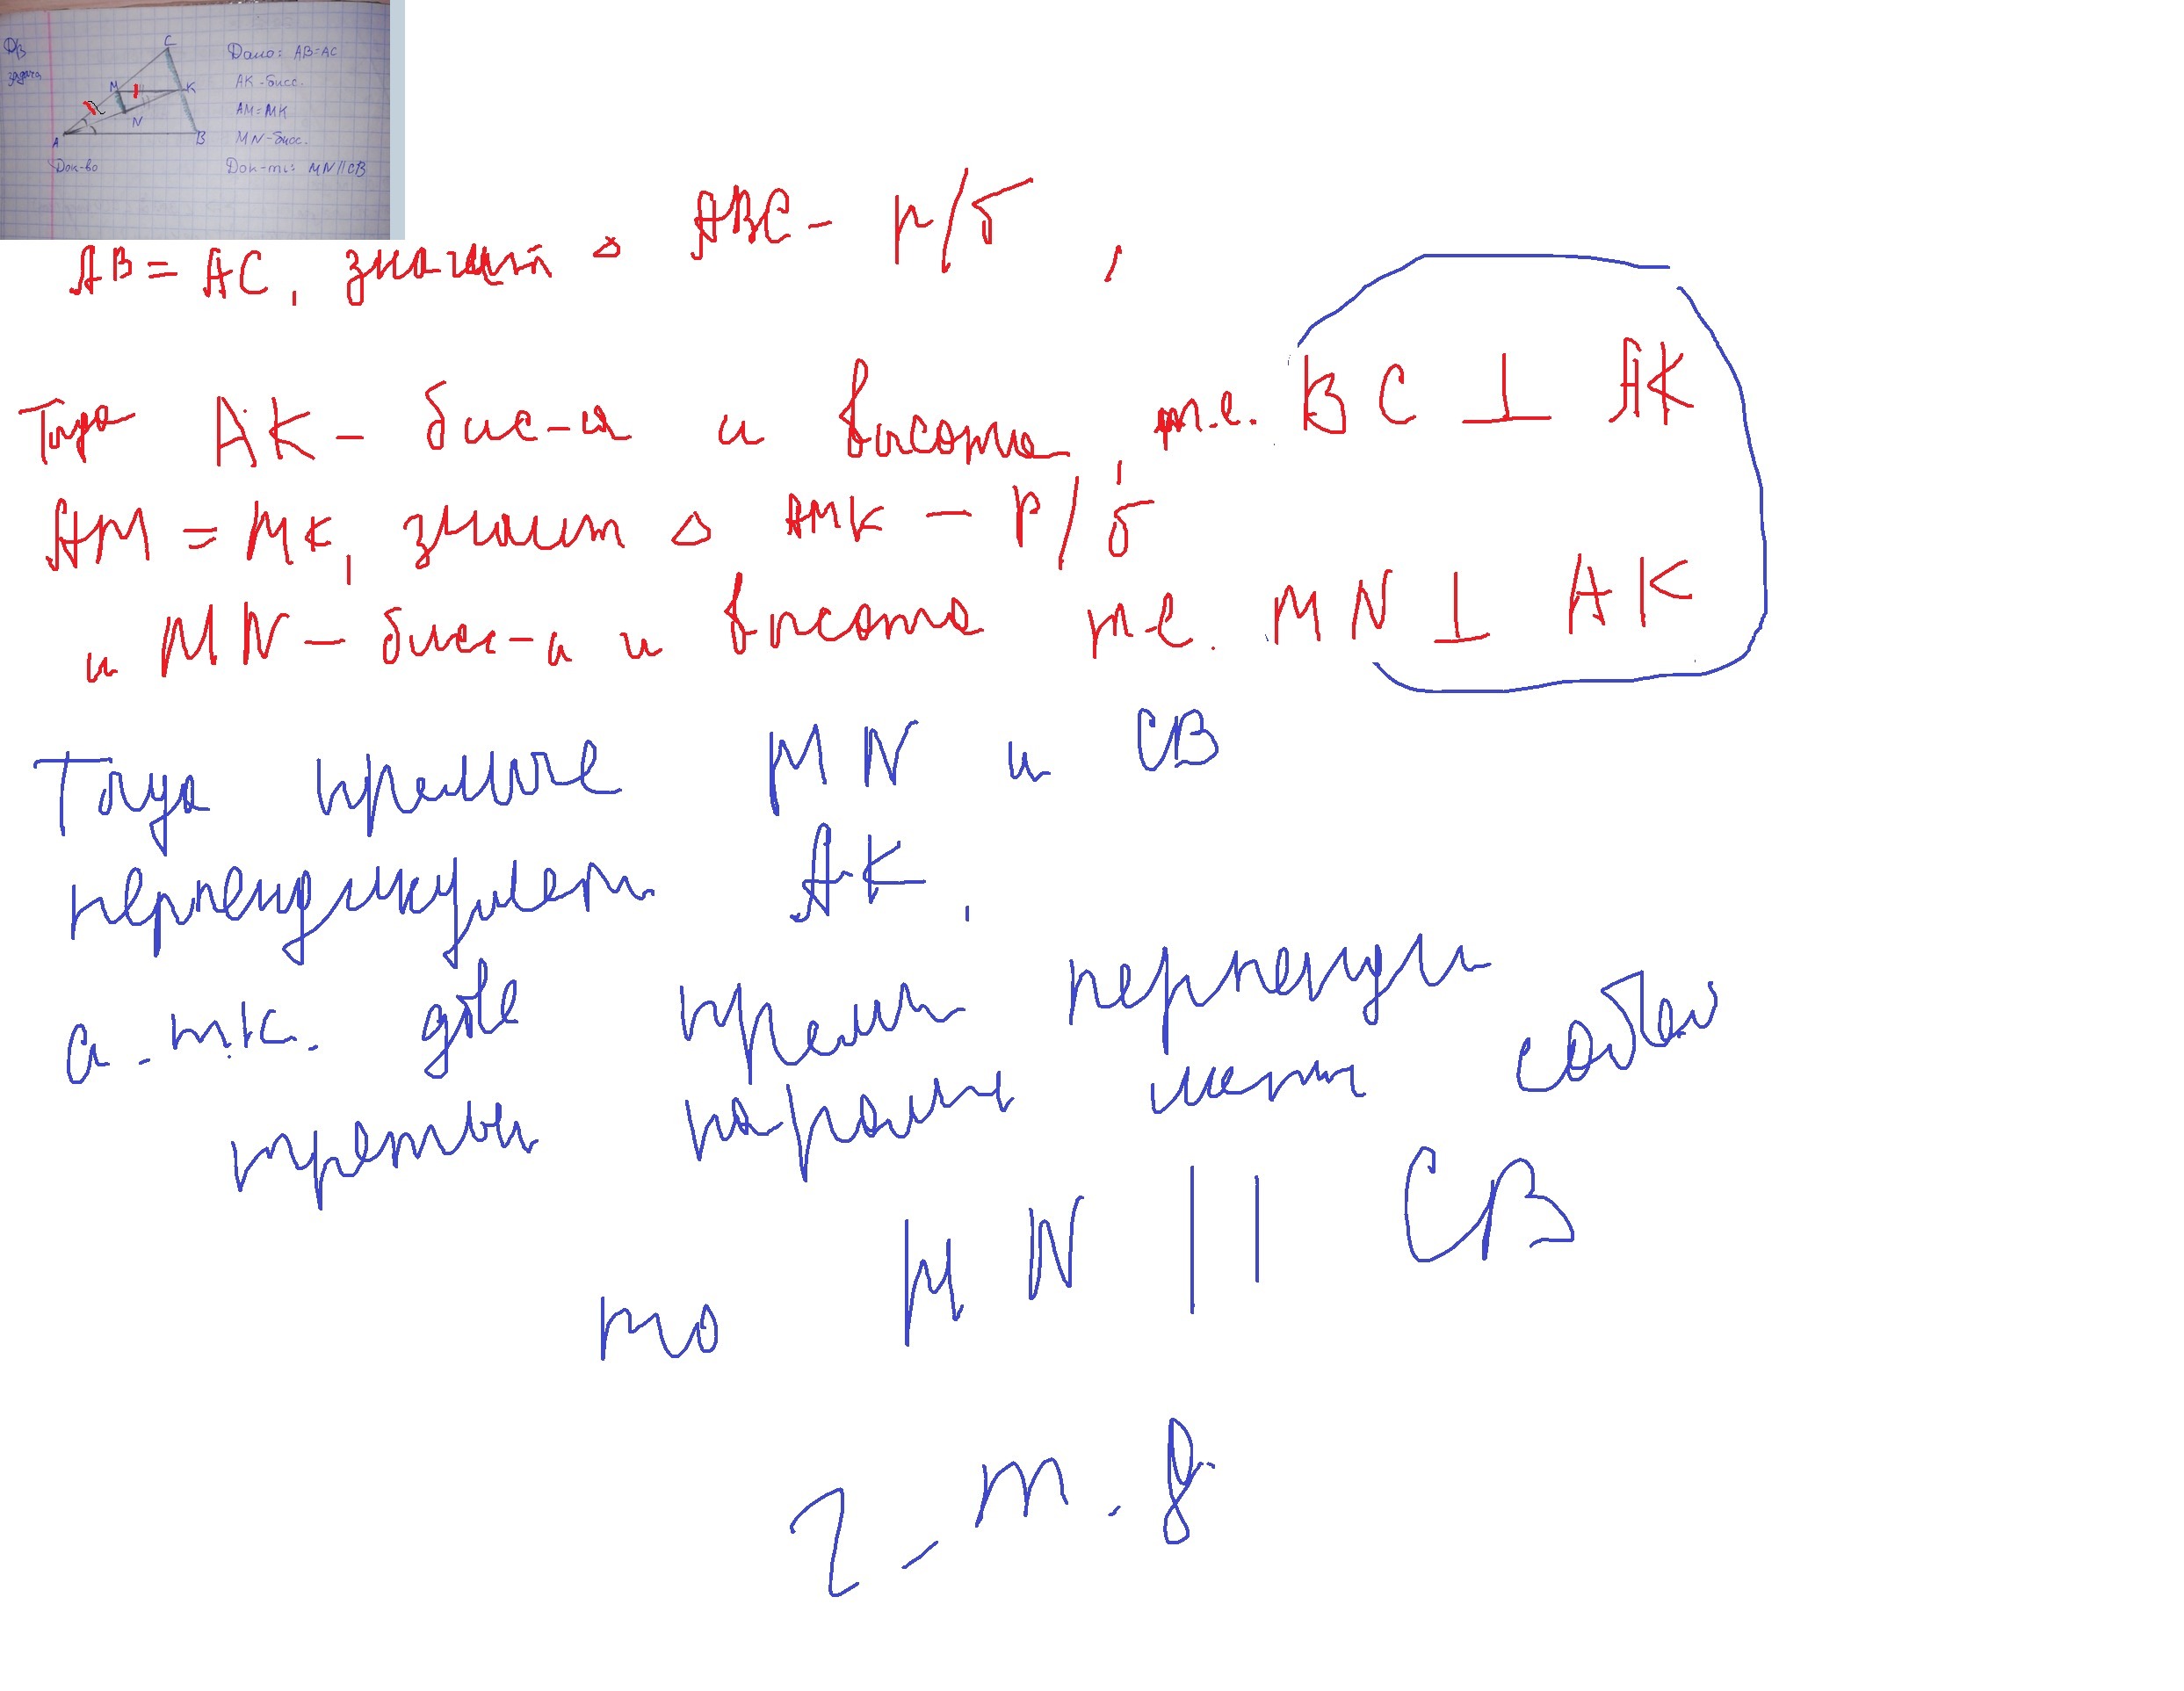 D/З
задача
C
M
K
N
A
B
Дано: AB=AC
AK-бисс.
AM=MK
MN-бисс.
Док-во
Док-ть: MN||CB
AB = AC, значит △ ABC - р/б,
Тогда AK - бис-а и высота, т.е. BC ⊥ AK
AM = MK, значит △ AMK - р/б
и MN - бисс-а и высота т.е. MN ⊥ AK
Тогда прямые MN и CB
AK,
а т.к. две прямы перпенди
третьи собой
то MN || CB
ч.т.д.